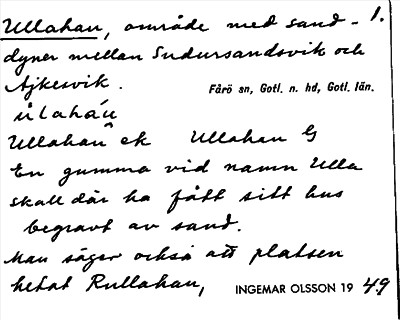 Ullahau, område med sand- 1.
dyner mellan Sudursandsvik och
Ajkesvik.
Fårö sn, Gotl. n. hd, Gotl. län.
ùlaháu
Ullahau ek Ullahau G
En gumma vid namn Ulla
skall där ha fått sitt hus
begravt av sand.
Man säger också att platsen
hetat Rullahau,
INGEMAR OLSSON 1949